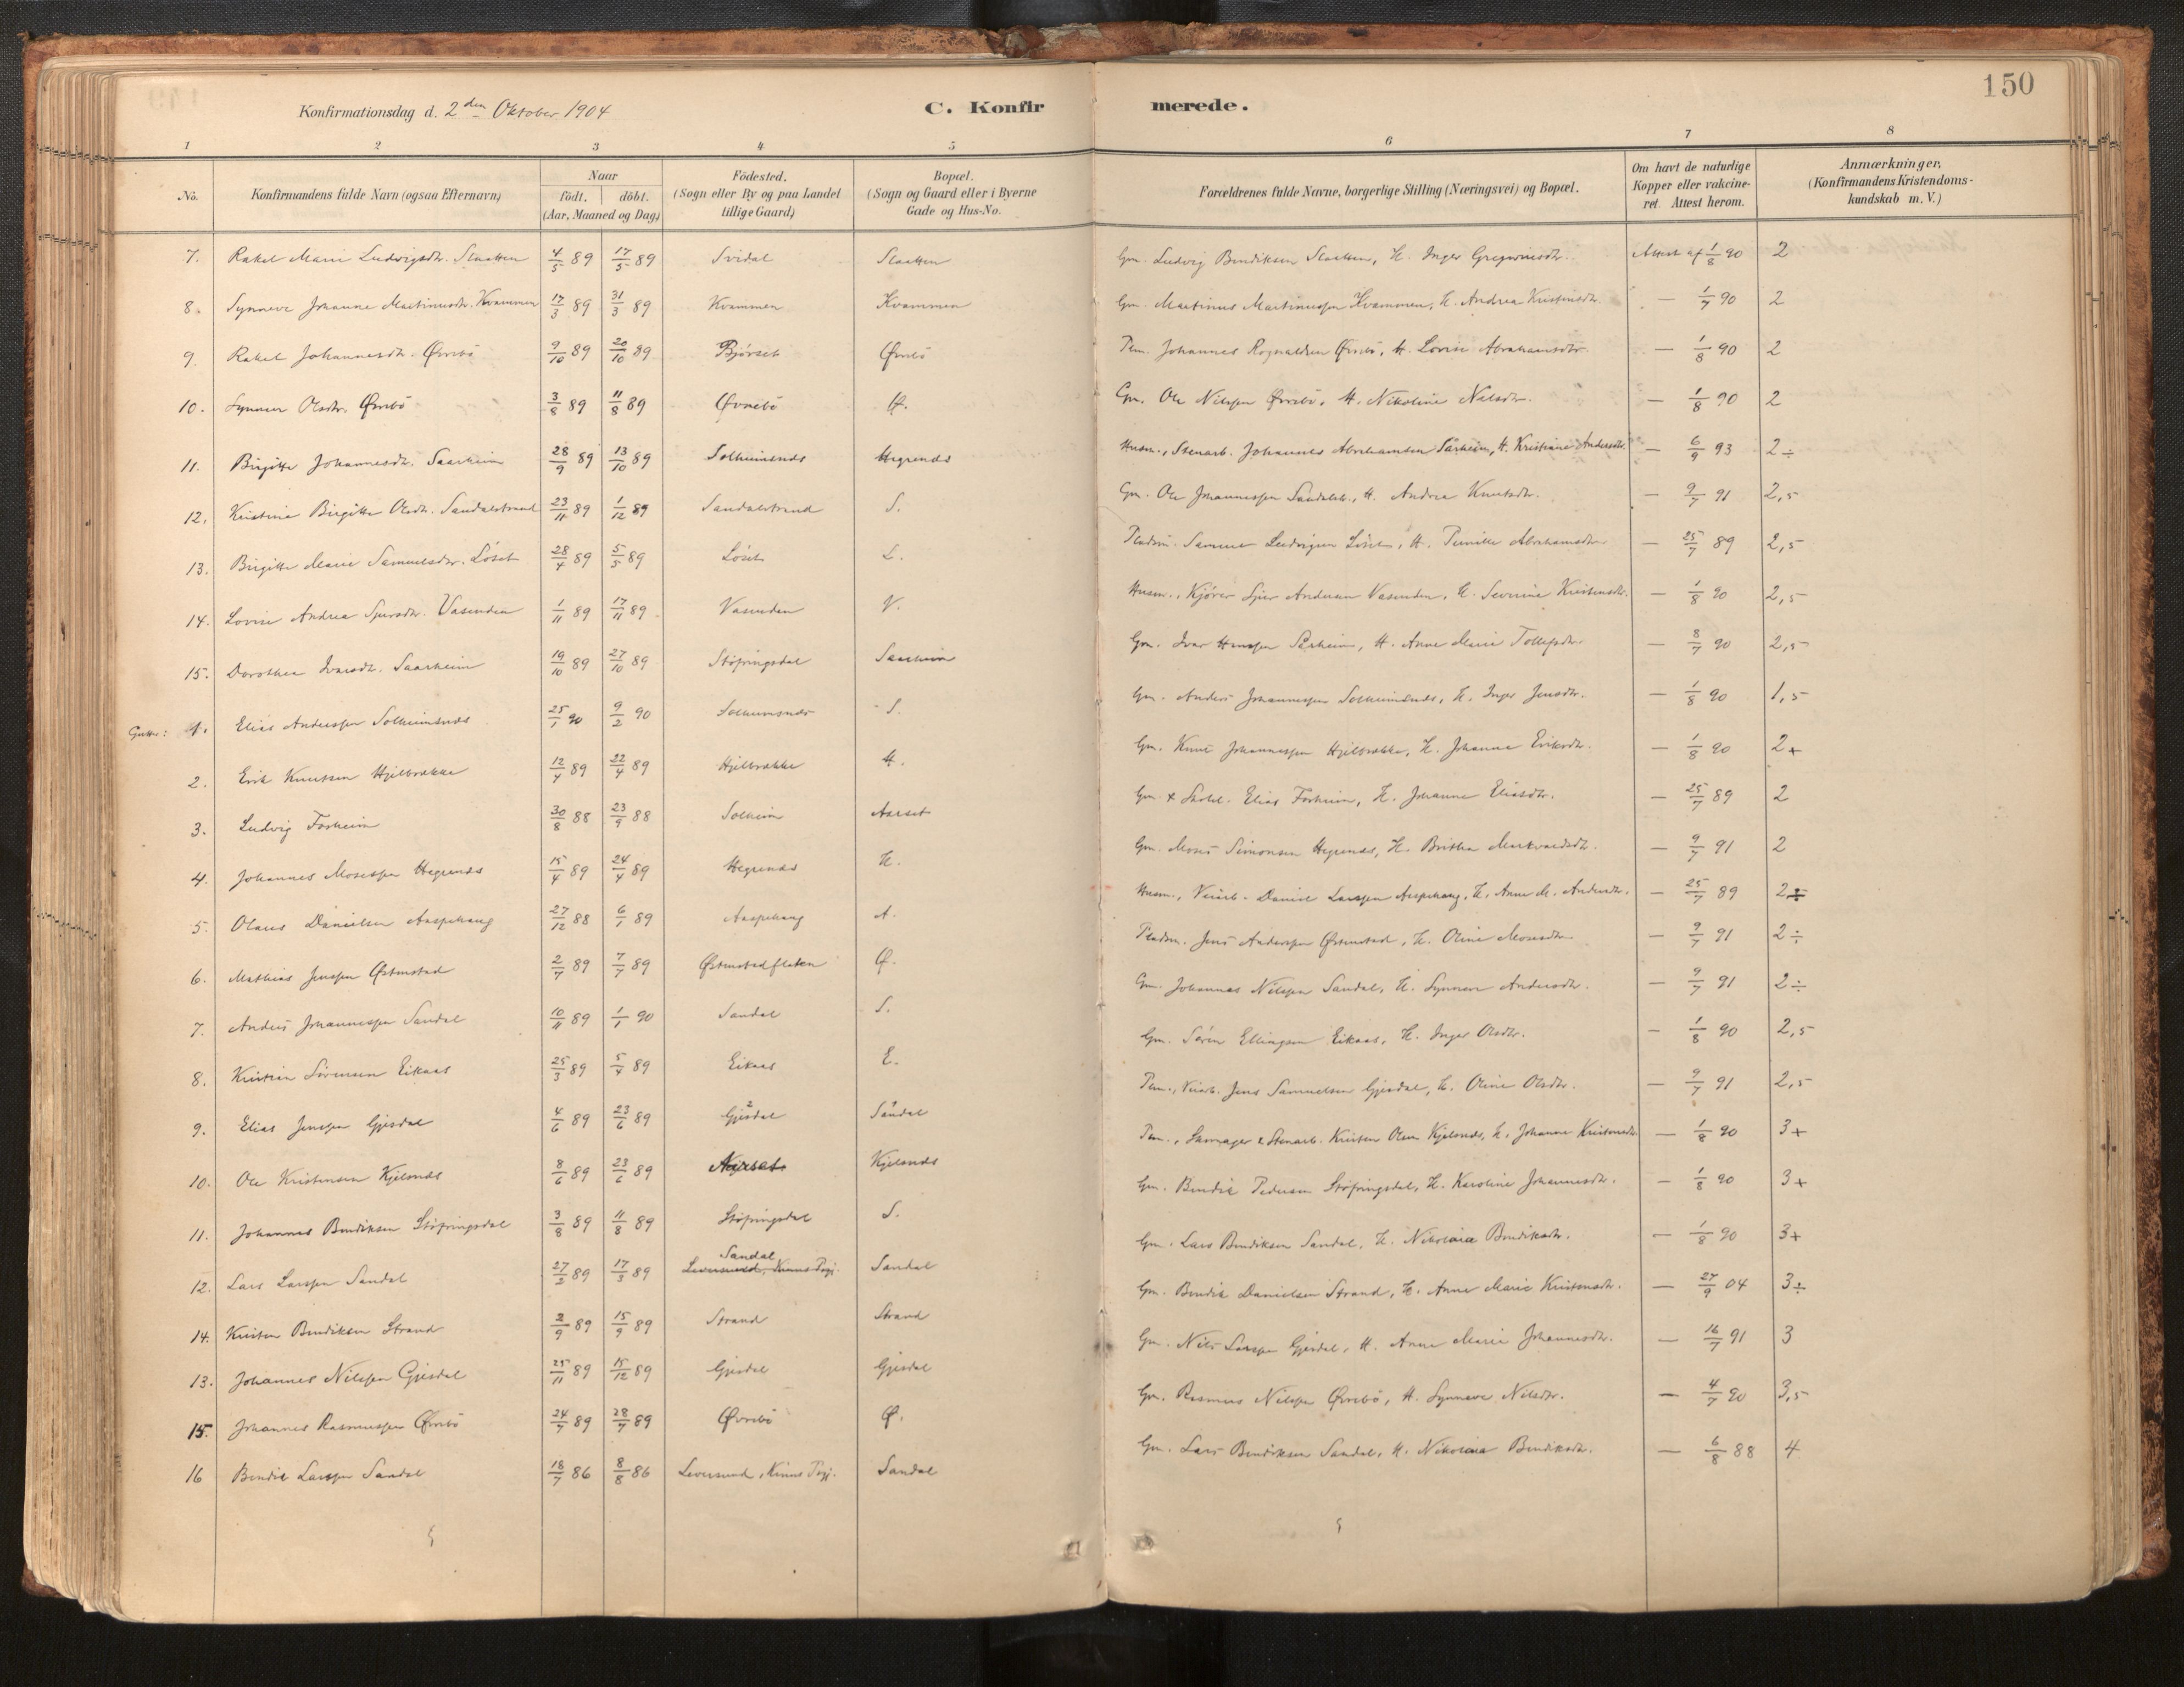 150
Konfirmationsdag d. 2den Oktober 1904
C. Konfirmerede.
1 2 3 4 5 6 7 8
No. Konfirmandens fulde Navn (ogsaa Efternavn) Naar födt, döbt. (Aar, Maaned og Dag) Födested. (Sogn eller By og paa Landet tillige Gaard) Bopæl. (Sogn og Gaard eller i Byerne Gade og Hus-No. Forældrenes fulde Navne, borgerlige Stilling (Næringsvei) og Bopæl. Om havt de naturlige Kopper eller vakcineret. Attest herom. Anmærkninger. (Konfirmandens Kristendomskundskab m. V.)
7. Rakel Marie Ludvigsdtr. Slaatten 4/5 89 17/5 89 Svidal Slaatten Gm. Ludvig Bendiksen Slaatten, H. Inger Gregoriusdtr. Attest af 1/8 90 2
8. Synneve Johanne Martinusdtr. Kvammen 17/3 89 31/3 89 Kvammen Kvammen Gm. Martinus Martinussen Kvammen, H. Andrea Kristensdtr. — 1/7 90 2
9. Rakel Johannesdtr. Øvrebö 9/10 89 20/10 89 Bjørset Øvrebö Pm. Johannes Rognaldsen Øvrebö, H. Lovise Abrahamsdtr. — 1/8 90 2
10. Synneve Olsdtr. Øvrebö 3/8 89 11/8 89 Øvrebö Ø. Gm. Ole Nilssen Øvrebö, H. Nikoline Nilsdtr. — 1/8 90 2
11. Birgitte Johannesdtr. Saarheim 28/9 89 13/10 89 Solheimsnes Hegrenes Husm., Stenarb. Johannes Abrahamsen Sårheim, H. Kristiane Andersdtr. — 6/9 93 2÷
12. Kristine Birgitte Olsdtr. Sandalstrand 23/11 89 1/12 89 Sandalstrand S. Gm. Ole Johannessen Sandalstr., H. Andrea Knutsdtr. — 9/7 91 2,5
13. Birgitte Marie Samuelsdtr. Löset 28/4 89 5/5 89 Löset L. Pladsm. Samuel Ludvigsen Löset, H. Pernille Abrahamsdtr. — 25/7 89 2,5
14. Lovise Andrea Sjursdtr. Vasenden 1/11 89 17/11 89 Vasenden V. Husm., Kjører Sjur Andersen Vasenden, H. Severine Kristensdtr. — 1/8 90 2,5
15. Dorothea Ivarsdtr. Saarheim 19/10 89 27/10 89 Stöfringsdal Saarheim Gm. Ivar Hanssen Sårheim, H. Anne Marie Tollefsdtr. — 8/7 90 2,5
Gutter: 1. Elias Anderssen Solheimsnes 25/1 90 9/2 90 Solheimsnes S. Gm. Anders Johannessen Solheimsnes, H. Inger Jensdtr. — 1/8 90 1,5
2. Erik Knutsen Hjelbrekke 12/4 89 22/4 89 Hjelbrekke H. Gm. Knut Johannessen Hjelbrekke, H. Johanne Eriksdtr. — 1/8 90 2+
3. Ludvig Fosheim 30/8 88 23/9 88 Solheim Aarset Gm. & Skolel. Elias Fosheim, H. Johanne Eliasdtr. — 25/7 89 2
4. Johannes Mosessen Hegrenes 15/4 89 24/4 89 Hegrenes H. Gm. Moses Simonsen Hegrenes, H. Brithe Markvardsdtr. — 9/7 91 2
5. Olaus Danielsen Aaspehaug 27/12 88 6/1 89 Aaspehaug A. Husm., Veiarb. Daniel Larssen Aaspehaug, H. Anne M. Andersdtr. — 25/7 89 2÷
6. Mathias Jenssen Østenstad 2/7 89 7/7 89 Østenstadflaten Ø. Pladsm. Jens Anderssen Østenstad, H. Oline Mosesdtr. — 9/7 91 2÷
7. Anders Johannessen Sandal 10/11 89 1/1 90 Sandal S. Gm. Johannes Nilssen Sandal, H. Synneve Andersdtr. — 9/7 91 2÷
8. Kristian Sörensen Eikaas 25/3 89 5/4 89 Eikaas E. Gm. Sören Ellingsen Eikaas, H. Inger Olsdtr. — 1/8 90 2,5
9. Elias Jenssen Gjesdal 4/6 89 23/6 89 Gjesdal Sandal Pm., Veiarb. Jens Samuelsen Gjesdal, H. Oline Olsdtr. — 9/7 91 2,5
10. Ole Kristensen Kjelsnes 8/6 89 23/6 89 Aarset Kjelsnes Pm., Skomager & Stenarb. Kristen Olsen Kjelsnes, H. Johanne Kristensdtr. — 1/8 90 3+
11. Johannes Bendiksen Stöfringsdal 3/8 89 11/8 89 Stöfringsdal S. Gm. Bendik Pedersen Stöfringsdal, H. Karoline Johannesdtr. — 1/8 90 3+
12. Lars Larssen Sandal 27/2 89 17/3 89 Sandal Leversund, Kinns Prgj. Sandal Gm. Lars Bendiksen Sandal, H. Nikolaia Bendiksdtr. — 1/8 90 3+
14. Kristen Bendiksen Strand 2/9 89 15/9 89 Strand Strand Gm. Bendik Danielsen Strand, H. Anne Marie Kristensdtr. — 27/9 04 3÷
13. Johannes Nilssen Gjesdal 25/11 89 15/12 89 Gjesdal Gjesdal Gm. Nils Larssen Gjesdal, H. Anne Marie Johannesdtr. — 16/7 91 3
15. Johannes Rasmussen Øvrebö 24/7 89 28/7 89 Øvrebö Ø. Gm. Rasmus Nilssen Øvrebö, H. Synneve Nilsdtr. — 4/7 90 3,5
16 Bendik Larssen Sandal 18/7 86 8/8 86 Leversund, Kinns Prgj. Sandal Gm. Lars Bendiksen Sandal, H. Nikolaia Bendiksdtr. — 6/8 88 4